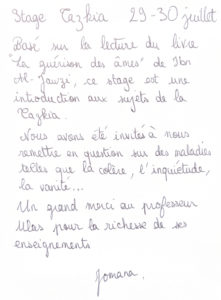 Stage Tazkia 29-30 juillet
Basé sur la lecture du livre
"La guérison des âmes" de Ibn
Al-Jawzi, ce stage est une
introduction aux sujets de la
Tazkia.
Nous avons été invités à nous
remettre en question sur des maladies
telles que la colère, l'inquiétude,
la vanité...
Un grand merci au professeur
Ulas pour la richesse de ses
enseignements
Jomana.